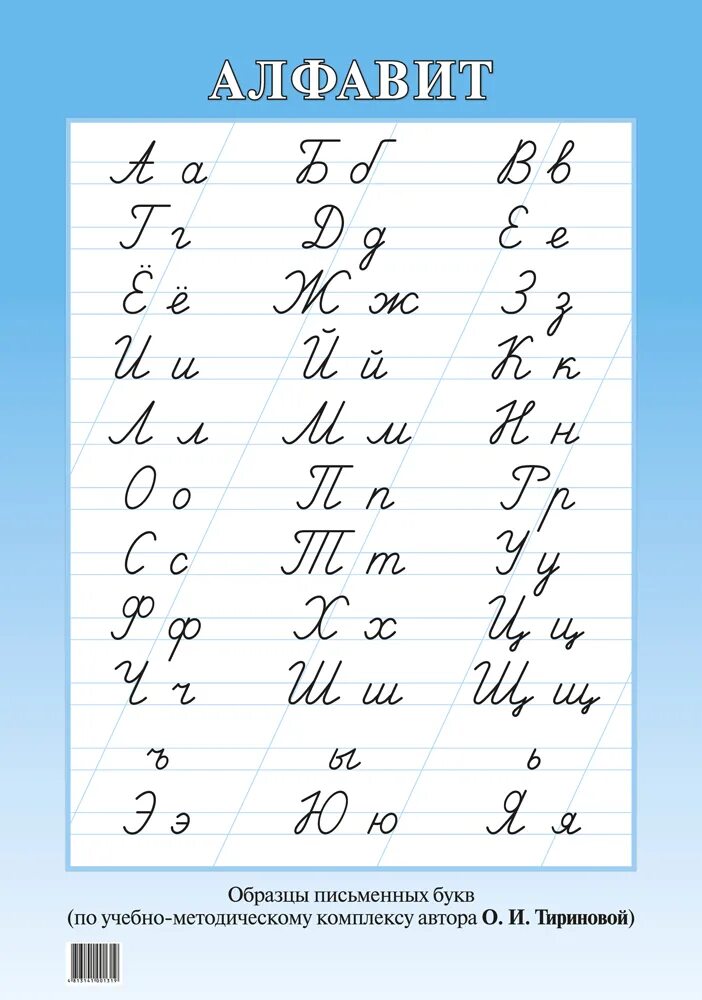 АЛФАВИТ
А а Б б В в
Г г Д д Е е
Ё ё Ж ж З з
И и Й й К к
Л л М м Н н
О о П п Р р
С с Т т У у
Ф ф Х х Ц ц
Ч ч Ш ш Щ щ
ъ ы ь
Э э Ю ю Я я
Образцы письменных букв
(по учебно-методическому комплексу автора О. И. Тириновой)
4 813141 001319